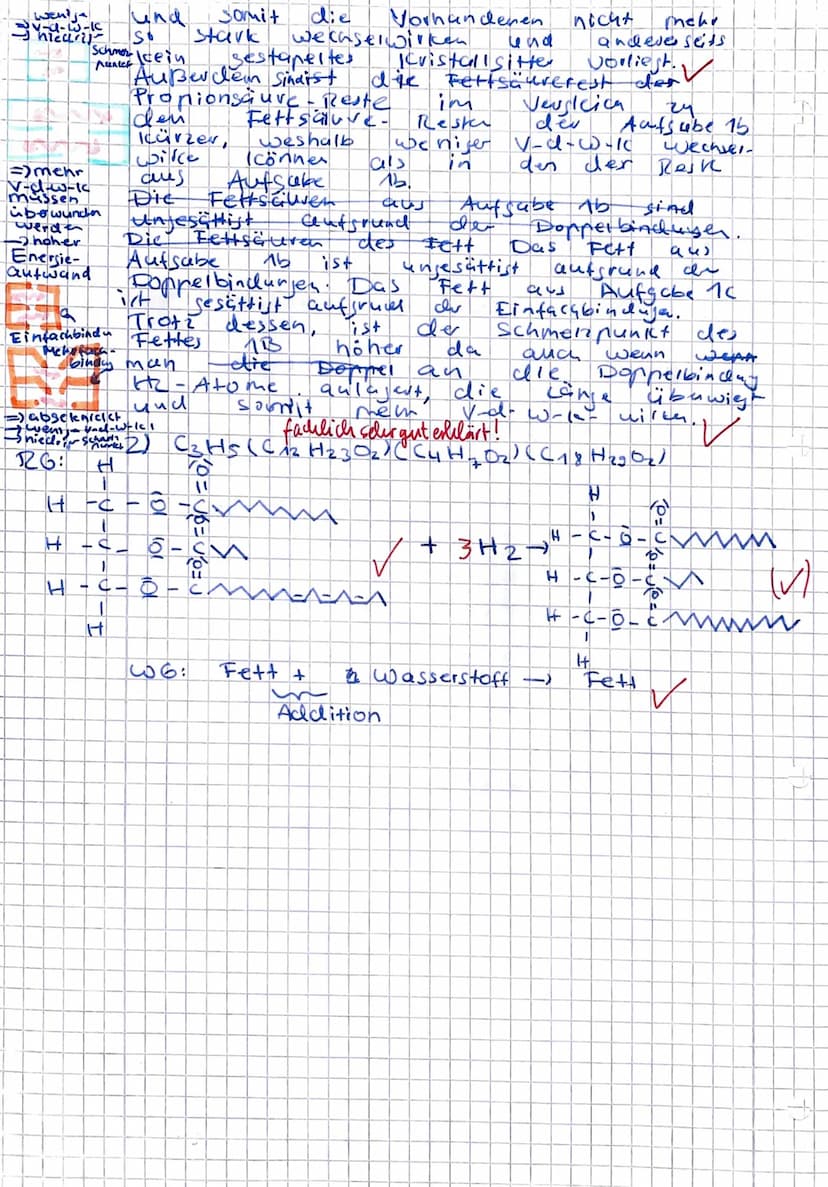 wenig-
v-d-w-k
=> niedrig-
Schmelz
punkt
und somit die Vorhandenen nicht mehr
so stark wechselwirken und andererseits
kein gestapeltes Kristallgitter vorliegt.
Außerdem sind ist die Fettsäurerest der
Propionsäure-Reste im Vergleich zu
den Fettsäure-Resten der Aufgabe 1b
kürzer, weshalb weniger V-d-W-K wechsel-
wirke können als in den der Reste
aus Aufgabe 1b.
Die Fettsäuren aus Aufgabe 1b sind
ungesättigt aufgrund der Doppelbindungen.
Die Fettsäuren des Fett Das Fett aus
Aufgabe 1b ist ungesättigt aufgrund der
Doppelbindungen. Das Fett aus Aufgabe 1c
ist gesättigt aufgrund der Einfachbindungen.
Trotz dessen, ist der Schmelzpunkt des
Fettes 1B höher da auch wenn wenn
man die Doppel an die Doppelbindung
H2-Atome anlagert, die Länge überwiegt
und somit mehr V-d-W-K wirken.
=> mehr
V-d-W-K
müssen
überwunden
werden
-> hoher
Energie-
aufwand
Einfachbindu
Mehrfach-
bindung
=> abgeknickt
-> wenig Vnd-W-K!
-> niedrig Schmelzpunkt
fachlich sehr gut erklärt!
2) C3H5(C12H23O2)(C4H7O2)(C18H29O2)
RG:
H
|O| |O| |O|
H - C - O - C
H - C - O - C
H - C - O - C
H
+ 3H2 ->
H
|O| |O| |O|
H - C - O - C
H - C - O - C
H - C - O - C
H
(√)
WG: Fett + Wasserstoff -> Fett
Addition